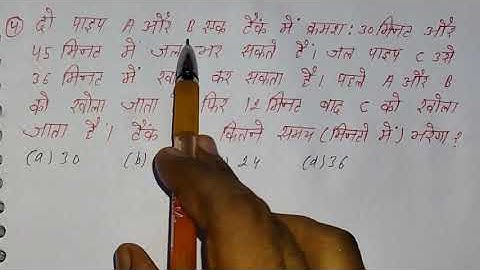 (4) दो पाइप A और B एक टैंक में क्रमशः 30 मिनट और
45 मिनट में जल भर सकते हैं। जल पाइप C उसे
36 मिनट में कर सकता है। पहले A और B
को खोला जाता फिर 12 मिनट बाद C को खोला
जाता है। टैंक कितने समय (मिनटो में) भरेगा?
(a) 30 (b) 24 (d) 36